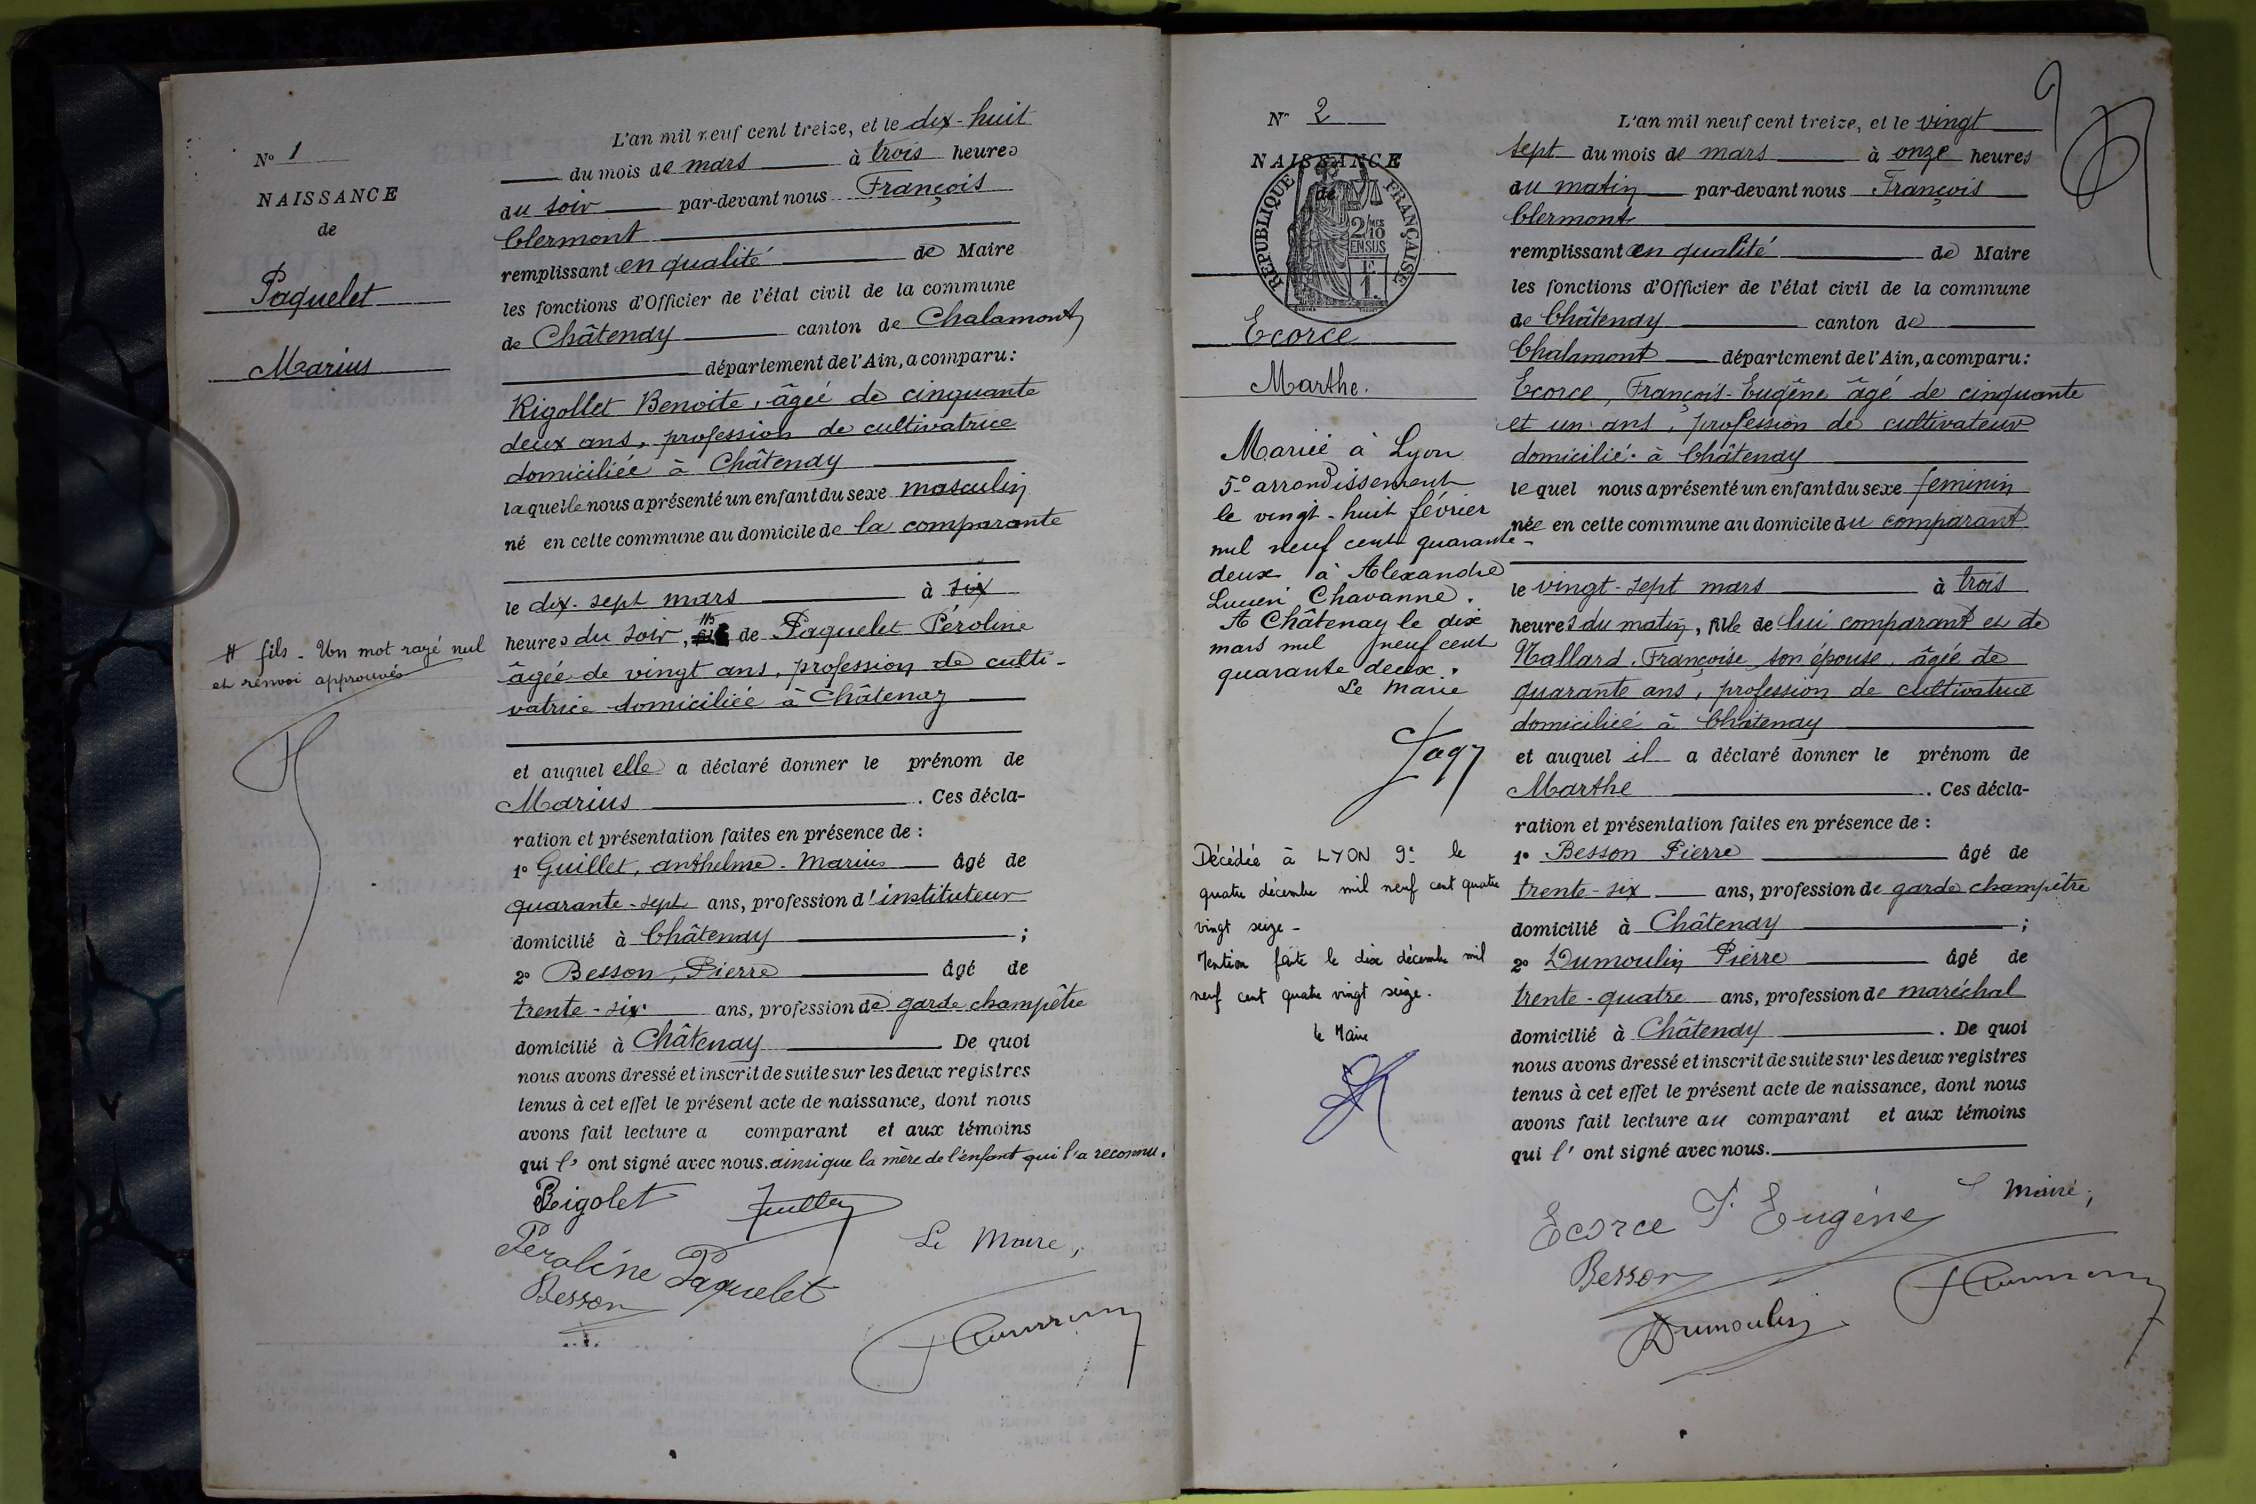 N° 1
NAISSANCE
de
Paquelet
Marius
# fils - Un mot rayé nul
et renvoi approuvés
L'an mil neuf cent treize, et le dix-huit
du mois de mars à trois heures
du soir par-devant nous François
Clermont
remplissant en qualité de Maire
les fonctions d'Officier de l'état civil de la commune
de Châtenay canton de Chalamont
département de l'Ain, a comparu :
Rigollet Benoite, âgée de cinquante
deux ans, profession de cultivatrice
domiciliée à Châtenay
laquelle nous a présenté un enfant du sexe masculin
né en cette commune au domicile de la comparante
le dix-sept mars à six
heures du soir, # de Paquelet Péroline
âgée de vingt ans, profession de culti-
vatrice domiciliée à Châtenay
et auquel elle a déclaré donner le prénom de
Marius . Ces décla-
ration et présentation faites en présence de :
1° Guillet, anthelme-Marius âgé de
quarante-sept ans, profession d'instituteur
domicilié à Châtenay ;
2° Besson, Pierre âgé de
trente-six ans, profession de garde champêtre
domicilié à Châtenay De quoi
nous avons dressé et inscrit de suite sur les deux registres
tenus à cet effet le présent acte de naissance, dont nous
avons fait lecture a comparant et aux témoins
qui l' ont signé avec nous. ainsi que la mère de l'enfant qui l'a reconnu.
Rigolet
Péroline Paquelet
Le Maire,
Besson
N° 2
NAISSANCE
de
REPUBLIQUE FRANÇAISE
2/10 EN SUS
Ecorce
Marthe.
Mariée à Lyon
5° arrondissement
le vingt-huit février
mil neuf cent quarante-
deux à Alexandre
Lucien Chavanne.
A Châtenay le dix
mars mil neuf cent
quarante deux.
Le Maire
Décédée à LYON 9e le
quatre décembre mil neuf cent quatre
vingt seize -
Mention faite le dix décembre mil
neuf cent quatre vingt seize.
Le Maire
L'an mil neuf cent treize, et le vingt
sept du mois de mars à onze heures
du matin par-devant nous François
Clermont
remplissant en qualité de Maire
les fonctions d'Officier de l'état civil de la commune
de Châtenay canton de
Chalamont département de l'Ain, a comparu :
Ecorce, François-Eugène âgé de cinquante
et un ans, profession de cultivateur
domicilié à Châtenay
lequel nous a présenté un enfant du sexe feminin
née en cette commune au domicile du comparant
le vingt-sept mars à trois
heures du matin, fille de lui comparant et de
Mallard, Françoise son épouse, âgée de
quarante ans, profession de cultivatrice
domiciliée à Châtenay
et auquel il a déclaré donner le prénom de
Marthe . Ces décla-
ration et présentation faites en présence de :
1° Besson Pierre âgé de
trente-six ans, profession de garde champêtre
domicilié à Châtenay ;
2° Dumoulin Pierre âgé de
trente-quatre ans, profession de maréchal
domicilié à Châtenay . De quoi
nous avons dressé et inscrit de suite sur les deux registres
tenus à cet effet le présent acte de naissance, dont nous
avons fait lecture au comparant et aux témoins
qui l' ont signé avec nous.
Ecorce F. Eugène
Maire,
Besson
Dumoulin